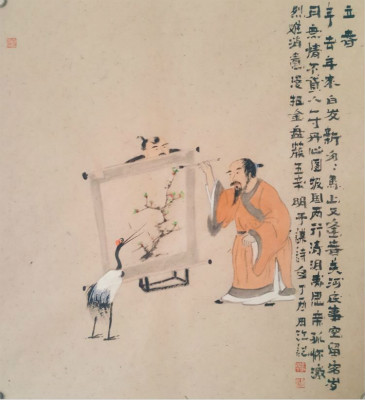 立春
年去年来白发新匆匆马上又逢春关河底事空留客岁
月无情不贷人一寸丹心图报国两行清泪为思亲孤怀激
烈难消遣漫把金盘簇五辛 明于谦诗 丁酉